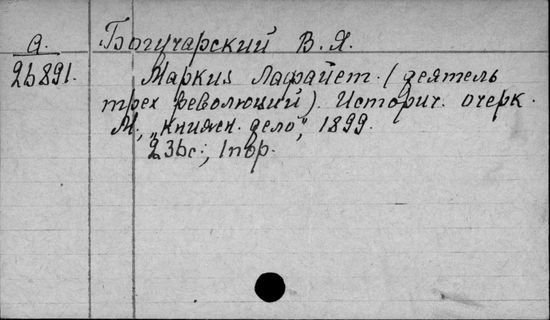 А. Богучарский В. Я.
26891. Маркиз Лафайет. (деятель
трех революций). Историч. очерк.
М., „книжн. дело“, 1899.
236с., 1пор.